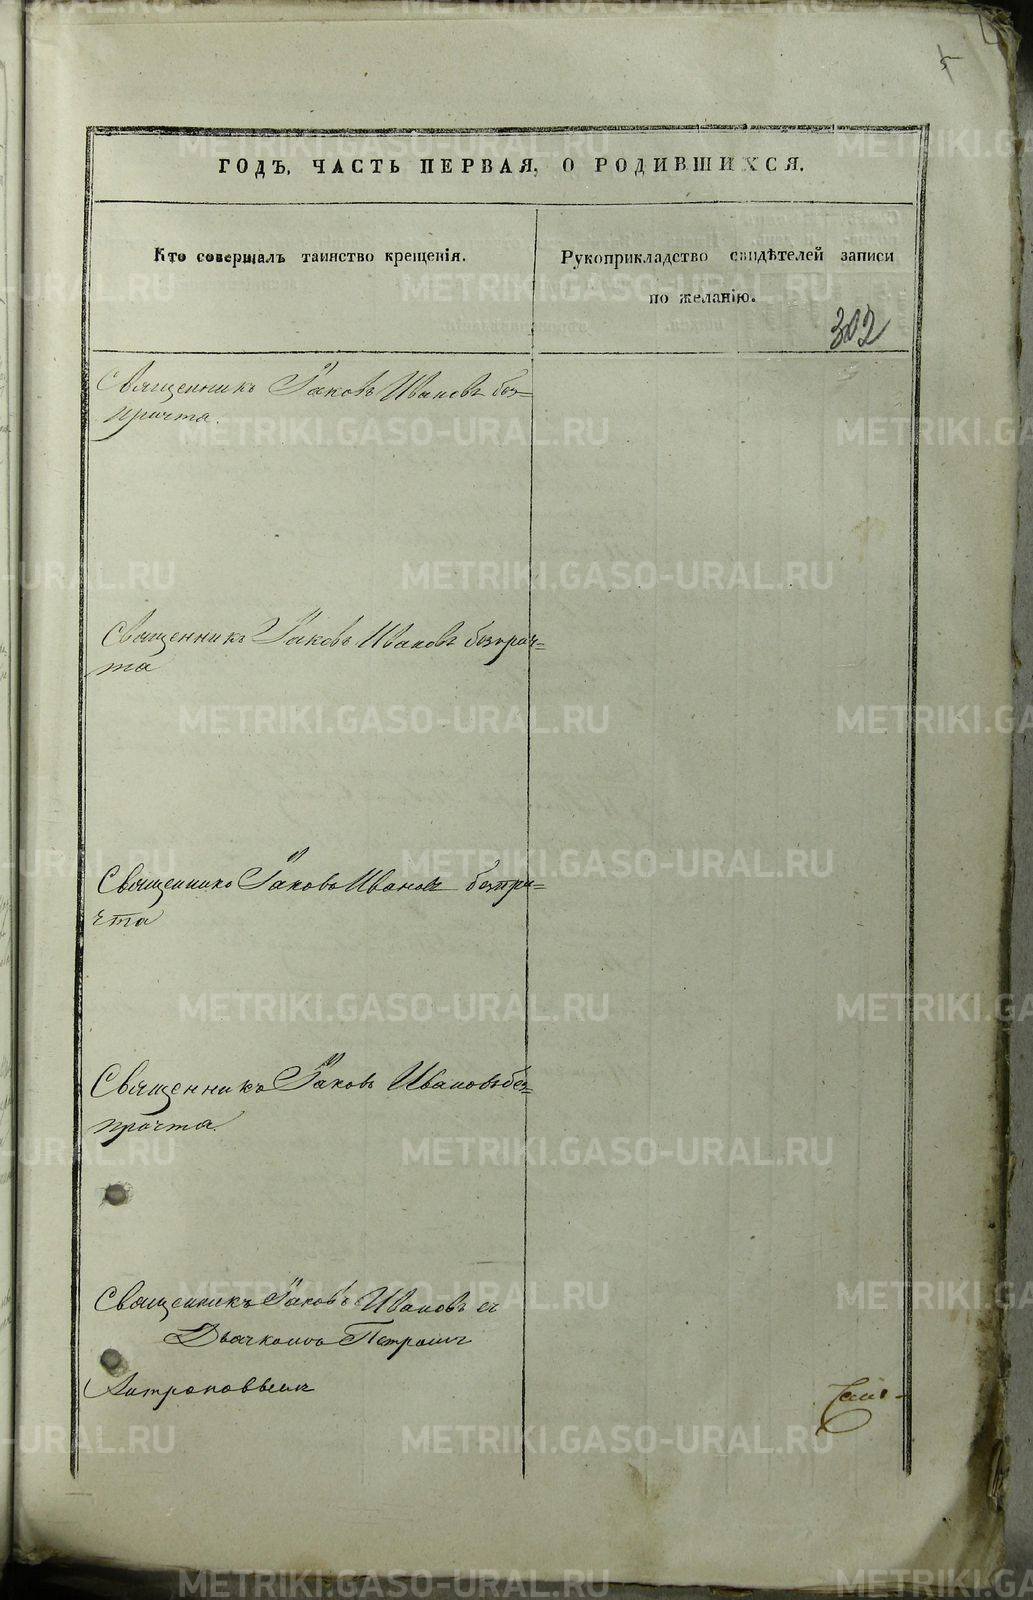 5
ГОДЪ, ЧАСТЬ ПЕРВАЯ, О РОДИВШИХСЯ.
Кто совершалъ таинство крещенія.
Рукоприкладство свидѣтелей записи
по желанію.
302
Священникъ Іаковъ Ивановъ без=
причта.
Священникъ Іаковъ Ивановъ безприч=
та
Священникъ Іаковъ Ивановъ безпри=
чта
Священникъ Іаковъ Ивановъ без=
причта.
Священникъ Іаковъ Ивановъ съ
Дьячкомъ Петромъ
Антроповымъ
METRIKI.GASO-URAL.RU